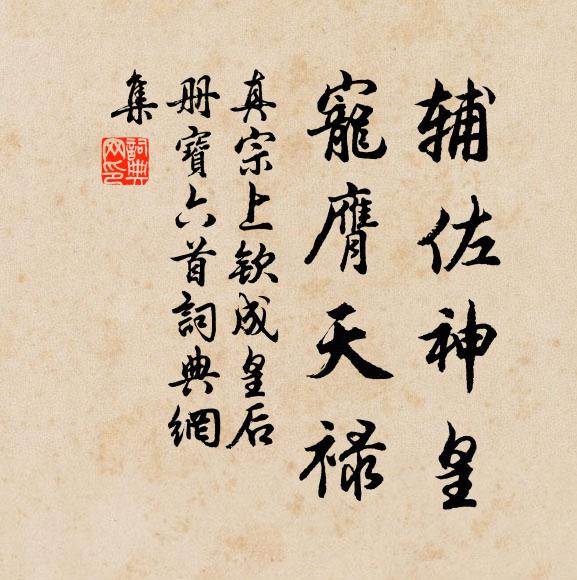 辅佐神皇
寵膺天禄
真宗上欽成皇后
册寶六首詞典網
集
詞典
网印